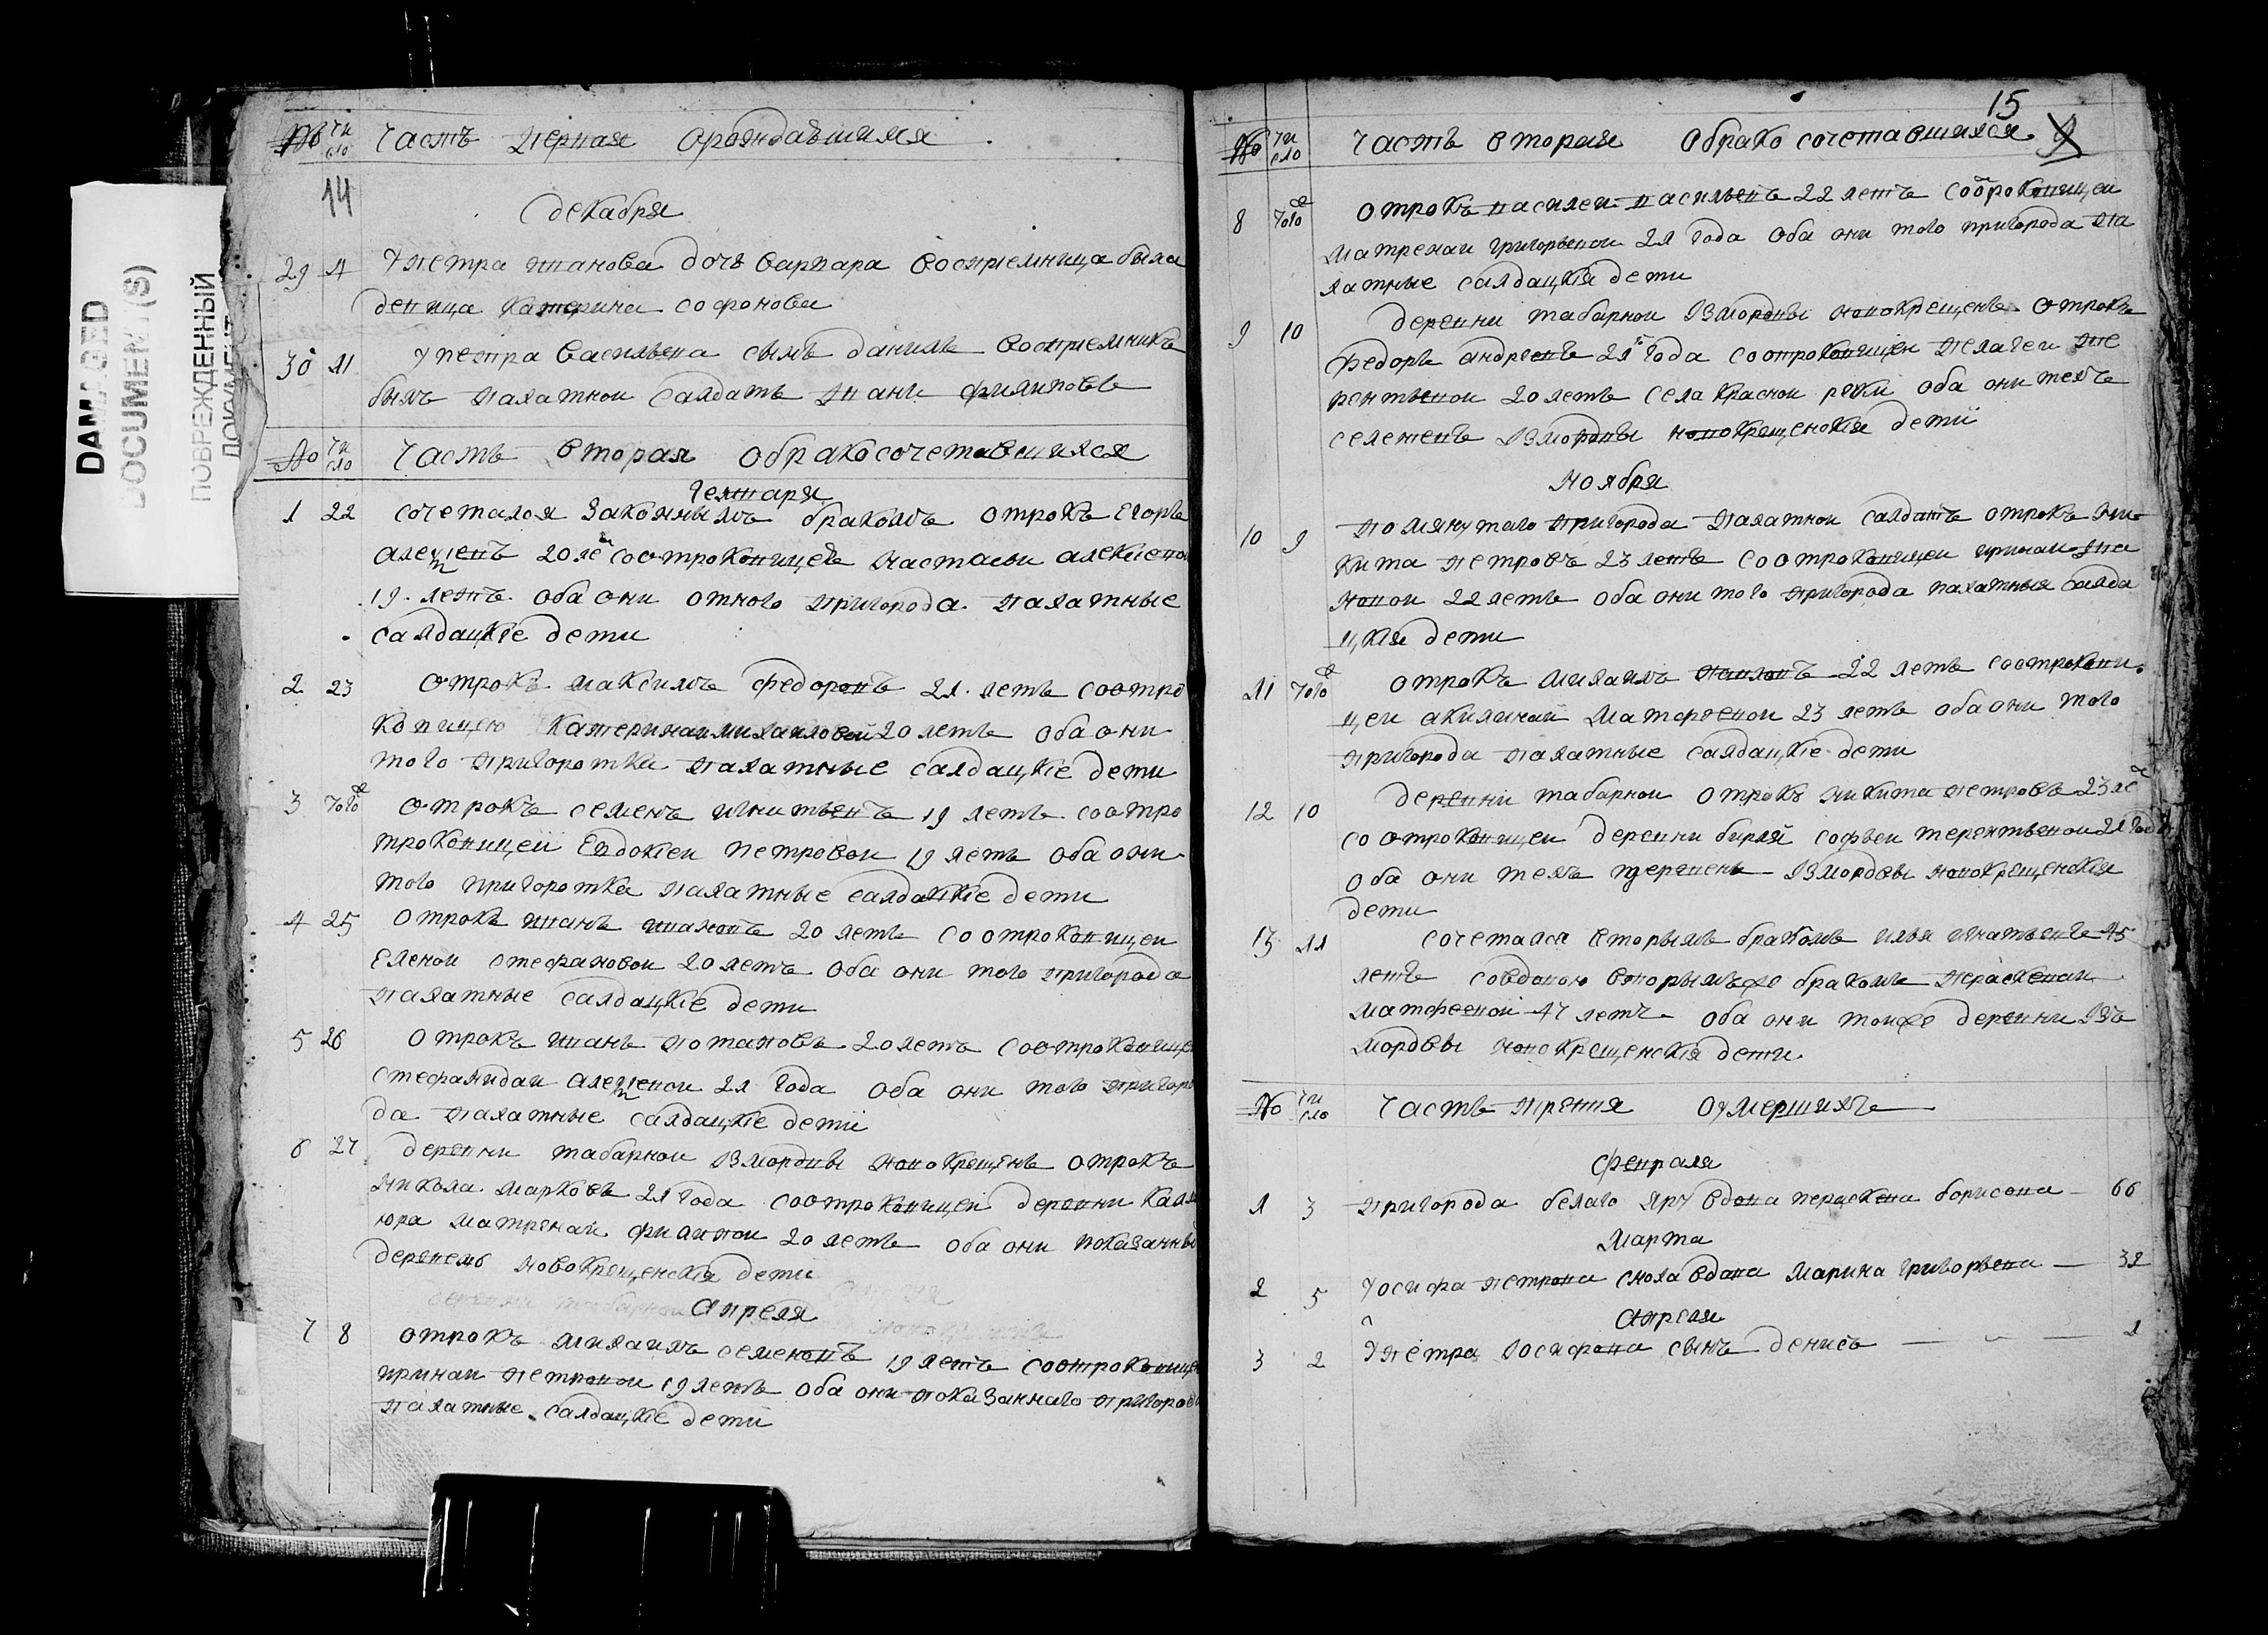 DAMAGED
DOCUMENT(S)
ПОВРЕЖДЕННЫЙ
ДОКУМЕНТ
№ число Часть первая орождавшимся
14
декабря
29 4 У петра иванова дочь варвара восприемница была
девица катерина софонова
30 11 У петра васильева сынъ данилъ восприемникъ
былъ пахатнои салдатъ иванъ филиповъ
№ число Часть вторая обракосочетавшихся
Генваря
1 22 сочетался законнымъ бракомъ отрокъ егоръ
алеѯеевъ 20 ле соотроковицею настасьи алексеевой
19 летъ оба они отного пригорода пахатные
салдацкiе дети
2 23 отрокъ максимъ федоровъ 21 летъ соотро
ковицею катеринаи михаиловой 20 летъ оба они
того пригоротка пахатные салдацкiе дети
3 того отрокъ семенъ игнатьевъ 19 летъ соотро
троковицеи Евдокiеи петровои 19 летъ оба они
того пригоротка пахатные салдацкiе дети
4 25 отрокъ иванъ ивановъ 20 летъ соотроковицеи
еленои стефановои 20 летъ оба они того пригорода
пахатные салдацкiе дети
5 26 отрокъ иванъ потаповъ 20 летъ соотроковице
стефанидаи алеѯеевои 21 года оба они того пригоро
да пахатные салдацкiе дети
6 27 деревни табарнои измордвы новокрещенъ отрокъ
никола марковъ 21 года соотроковицеи деревни каля
юра матренаи 20 летъ оба они показанны
деревень новокрещенскiя дети
Апреля
7 8 отрокъ михаилъ семеновъ 19 летъ соотроковице
иринаи петровои 19 летъ оба они показаннаго пригород
пахатные салдацкiе дети
15
№ число Часть вторая обракосочетавшихся 9
8 того отрокъ василеи васильевъ 22 летъ соотроковицеи
матренаи григорьевои 21 года оба они того пригорода па
хатные салдацкiя дети
9 10 деревни табарнои измордвы новокрещенъ отрокъ
федоръ андреевъ 21 года соотроковицеи пелагеи те
рентьевои 20 летъ села краснои реки оба они техъ
селенеевъ измордвы новокрещенскiя дети
Ноября
10 9 помянутаго пригорода пахатнои салдатъ отрокъ ни
кита петровъ 23 летъ соотроковицеи иринаи ива
новои 22 летъ оба они того пригорода пахатныя салда
цкiя дети
11 того отрокъ михаилъ 22 летъ соотрокови
цеи акилинаи матофеевои 23 летъ оба они того
пригорода пахатные салдацкiе дети
12 10 деревни табарнои отрокъ никита петровъ 23 ле
соотроковицеи деревни бирля софьеи терентьевои 21 года
оба они техъ деревень измордвы новокрещенскiя
дети
13 11 сочетался вторымъ бракомъ илья игнатьевъ 45
летъ совдовою вторымъже бракомъ праскеваи
матфеевои 47 летъ оба они тоиже деревни изъ
мордвы новокрещенскiя дети
№ число Часть третия оумершихъ
февраля
1 3 пригорода белаго яру вдова параскева борисова 66
Марта
2 5 У осифа петрова сноха вдова марина григорьева 32
Апреля
3 2 У петра иосифова сынъ денисъ 1